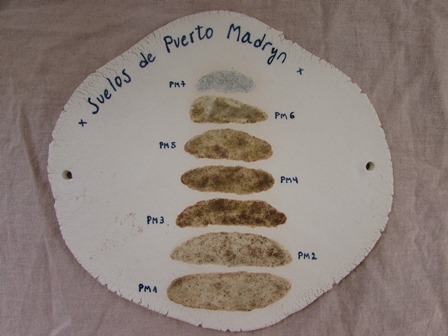 x Suelos de Puerto Madryn x
PM7
PM6
PM5
PM4
PM3
PM2
PM1